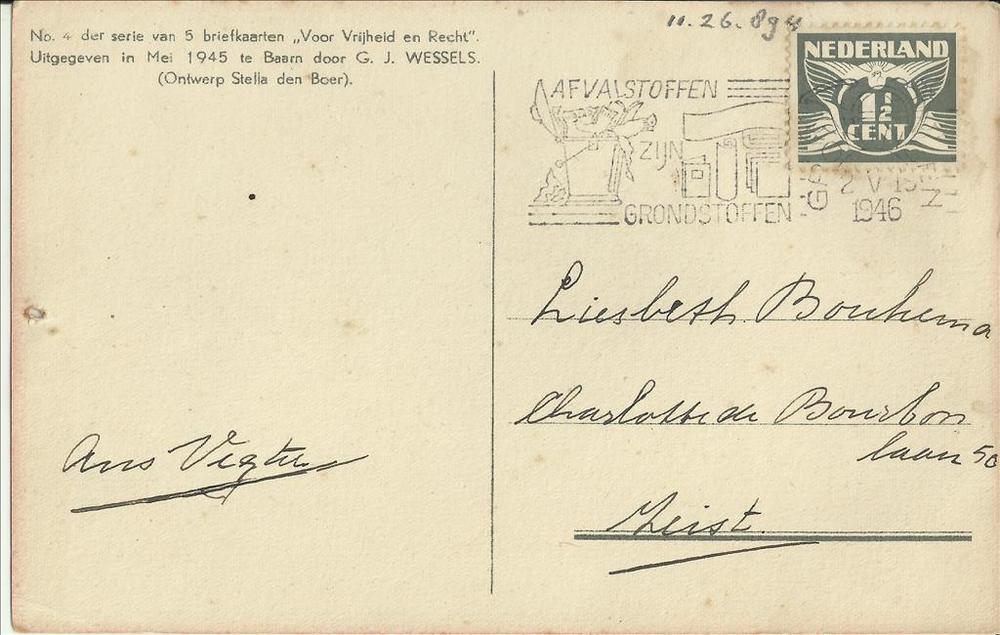 No. 4 der serie van 5 briefkaarten „Voor Vrijheid en Recht".
Uitgegeven in Mei 1945 te Baarn door G. J. WESSELS.
(Ontwerp Stella den Boer).
11.26.894
NEDERLAND
1½
CENT
AFVALSTOFFEN
ZIJN
GRONDSTOFFEN
2 V 19
1946
Liesbeth Bouhema
Charlotte de Bourbon
laan 50
Zeist.
Ans Vegter